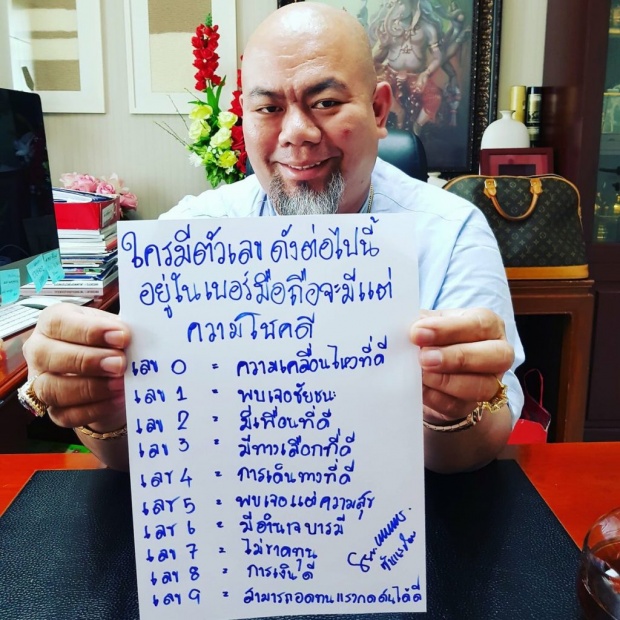 ใครมีตัวเลข ดังต่อไปนี้
อยู่ในเบอร์มือถือจะมีแต่
ความโชคดี
เลข 0 = ความเคลื่อนไหวที่ดี
เลข 1 = พบเจอชัยชนะ
เลข 2 = มีเพื่อนที่ดี
เลข 3 = มีทางเลือกที่ดี
เลข 4 = การเดินทางที่ดี
เลข 5 = พบเจอแต่ความสุข
เลข 6 = มีอำนาจบารมี
เลข 7 = ไม่ขาดทุน
เลข 8 = การเงินดี
เลข 9 = สามารถอดทนแรงกดดันได้ดี